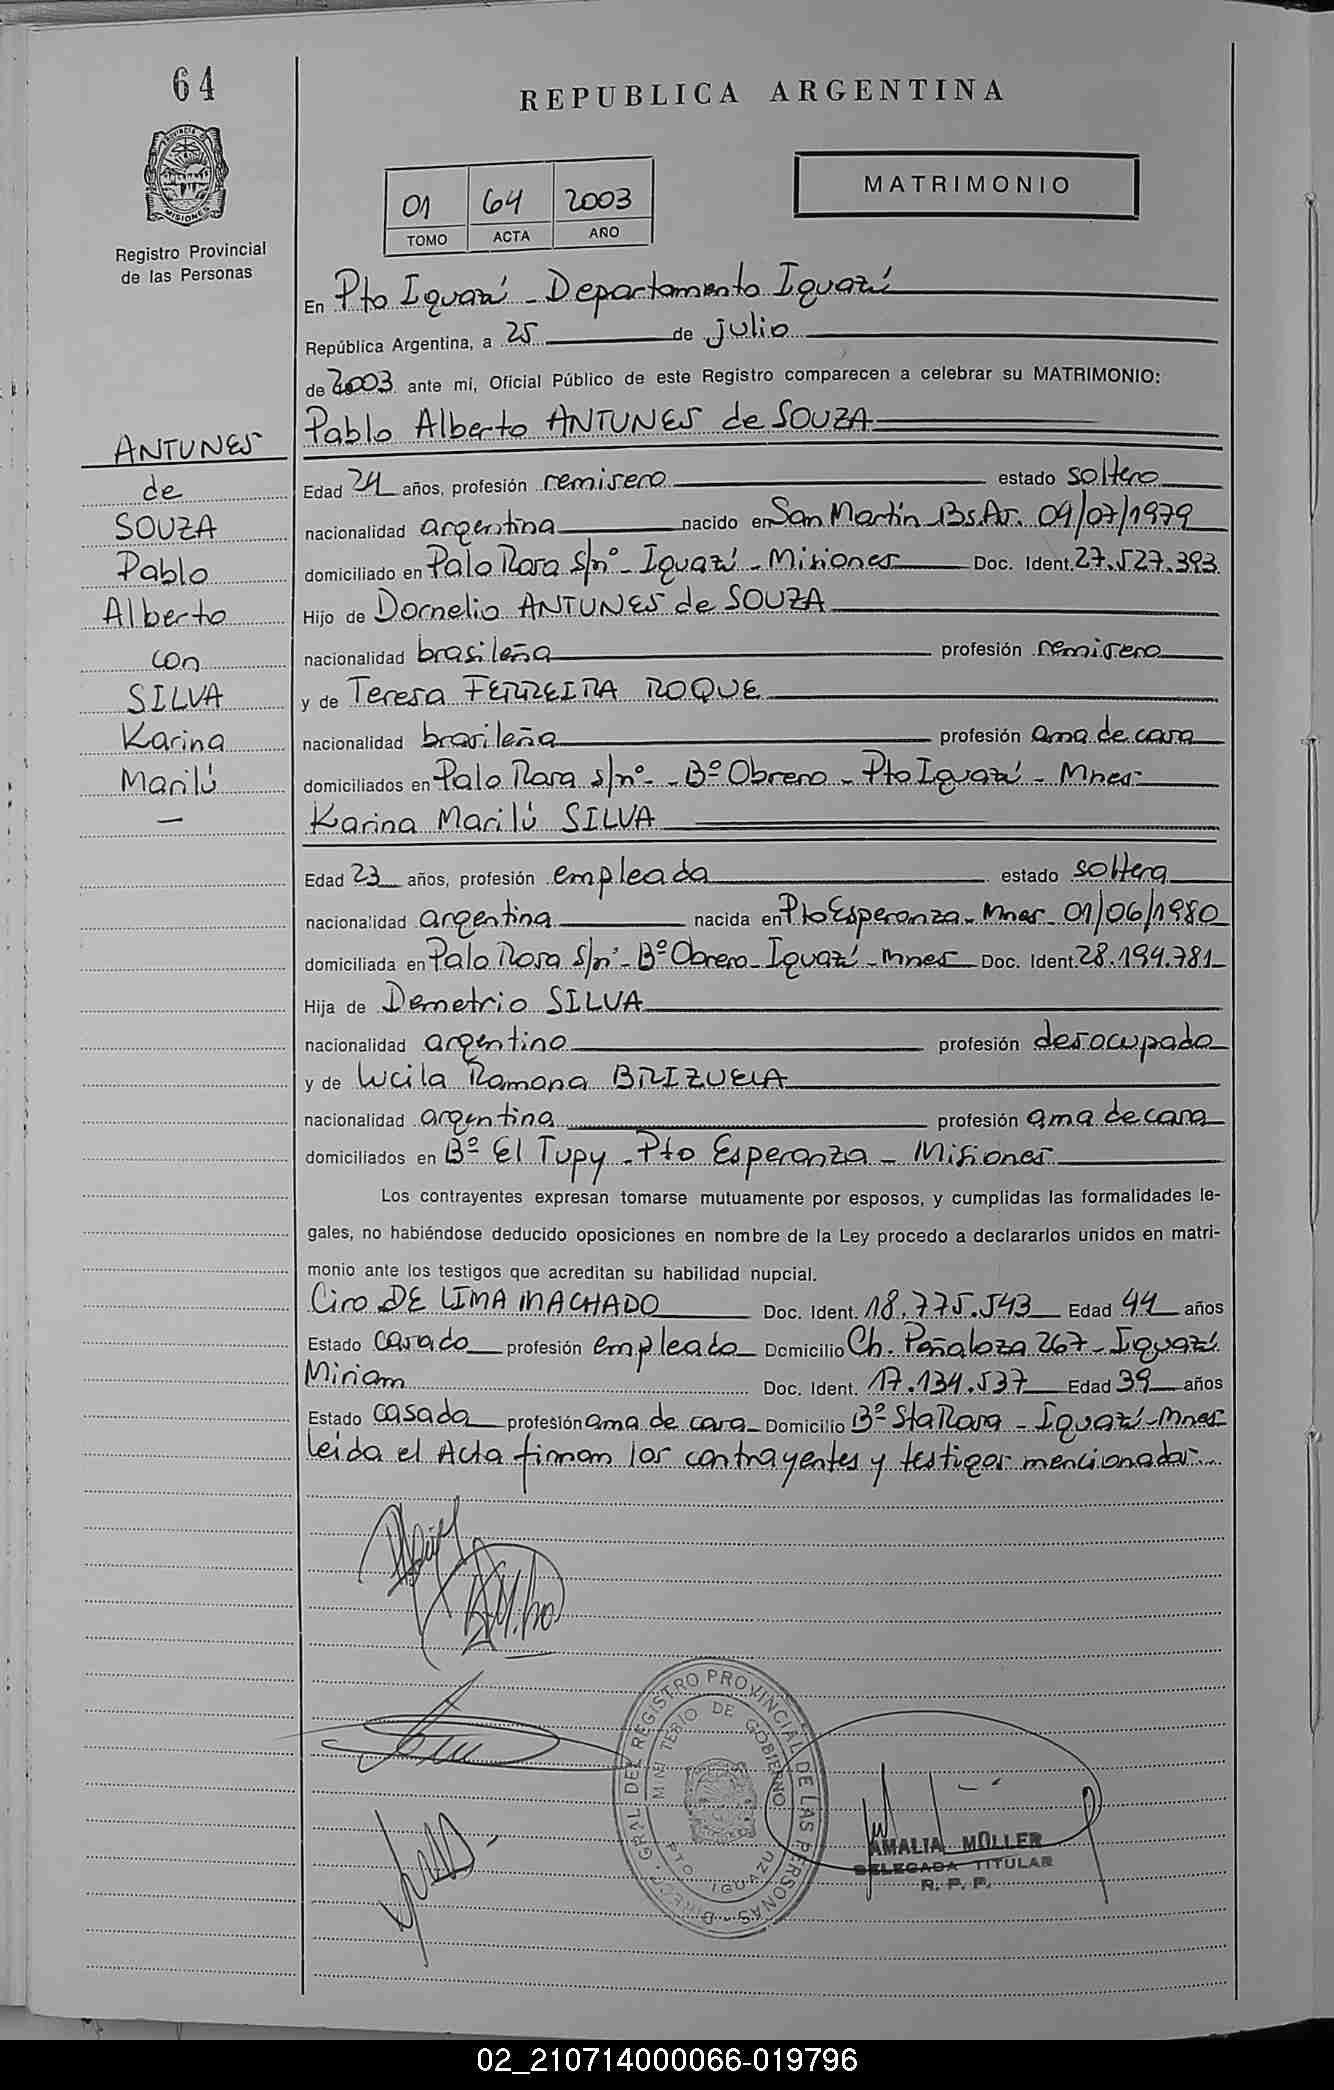 64
REPUBLICA ARGENTINA
PROVINCIA DE
MISIONES
Registro Provincial
de las Personas
01 64 2003
TOMO ACTA AÑO
MATRIMONIO
En Pto Iguazú - Departamento Iguazú
República Argentina, a 25 de julio
de 2003 ante mí, Oficial Público de este Registro comparecen a celebrar su MATRIMONIO:
Pablo Alberto ANTUNES de SOUZA
ANTUNES
de
SOUZA
Pablo
Alberto
con
SILVA
Karina
Marilú
—
Edad 24 años, profesión remisero estado soltero
nacionalidad argentina nacido en San Martín Bs.As. 09/07/1979
domiciliado en Palo Rosa s/nº - Iguazú - Misiones Doc. Ident. 27.527.393
Hijo de Dornelio ANTUNES de SOUZA
nacionalidad brasileña profesión remisero
y de Teresa FERREIRA ROQUE
nacionalidad brasileña profesión ama de casa
domiciliados en Palo Rosa s/nº - Bº Obrero - Pto Iguazú - Mnes
Karina Marilú SILVA
Edad 23 años, profesión empleada estado soltera
nacionalidad argentina nacida en Pto Esperanza - Mnes 01/06/1980
domiciliada en Palo Rosa s/nº - Bº Obrero - Iguazú - Mnes Doc. Ident. 28.194.781
Hija de Demetrio SILVA
nacionalidad argentino profesión desocupado
y de Lucila Ramona BRIZUELA
nacionalidad argentina profesión ama de casa
domiciliados en Bº El Tupy - Pto Esperanza - Misiones
Los contrayentes expresan tomarse mutuamente por esposos, y cumplidas las formalidades le-
gales, no habiéndose deducido oposiciones en nombre de la Ley procedo a declararlos unidos en matri-
monio ante los testigos que acreditan su habilidad nupcial.
Ciro DE LIMA MACHADO Doc. Ident. 18.775.543 Edad 44 años
Estado casado profesión empleado Domicilio Ch. Peñaloza 267 - Iguazú
Miriam Doc. Ident. 17.134.537 Edad 39 años
Estado casada profesión ama de casa Domicilio Bº Sta Rosa - Iguazú - Mnes
leída el Acta firman los contrayentes y testigos mencionados
DIREC. GRAL DEL REGISTRO PROVINCIAL DE LAS PERSONAS
MINISTERIO DE GOBIERNO
PTO IGUAZU
AMALIA MÜLLER
DELEGADA TITULAR
R. P. P.
02_210714000066-019796